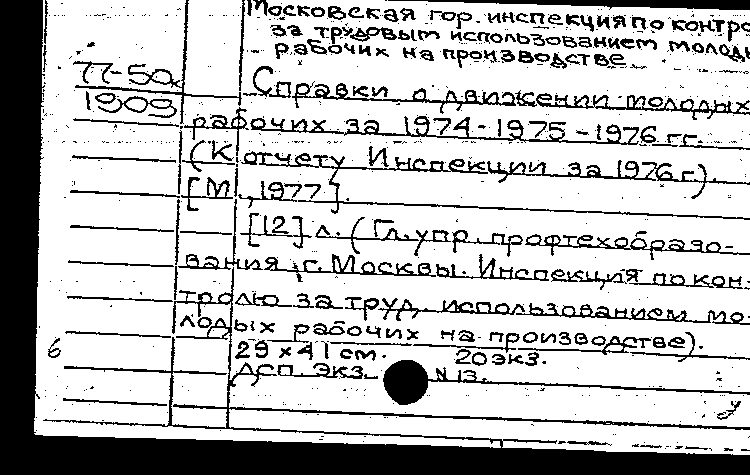 Московская гор. инспекция по контро
за трудовым использованием молоды
рабочих на производстве.
77-50к
1909
Справки о движении молодых
рабочих за 1974-1975-1976 гг.
(К отчету Инспекции за 1976 г).
[М., 1977].
[12] л. (Гл. упр. профтехобразо-
вания г. Москвы. Инспекция по кон-
тролю за труд. использованием мо-
лодых рабочих на производстве).
29 x 41 см. 20 экз.
ДСП. экз. N 13.
б
у